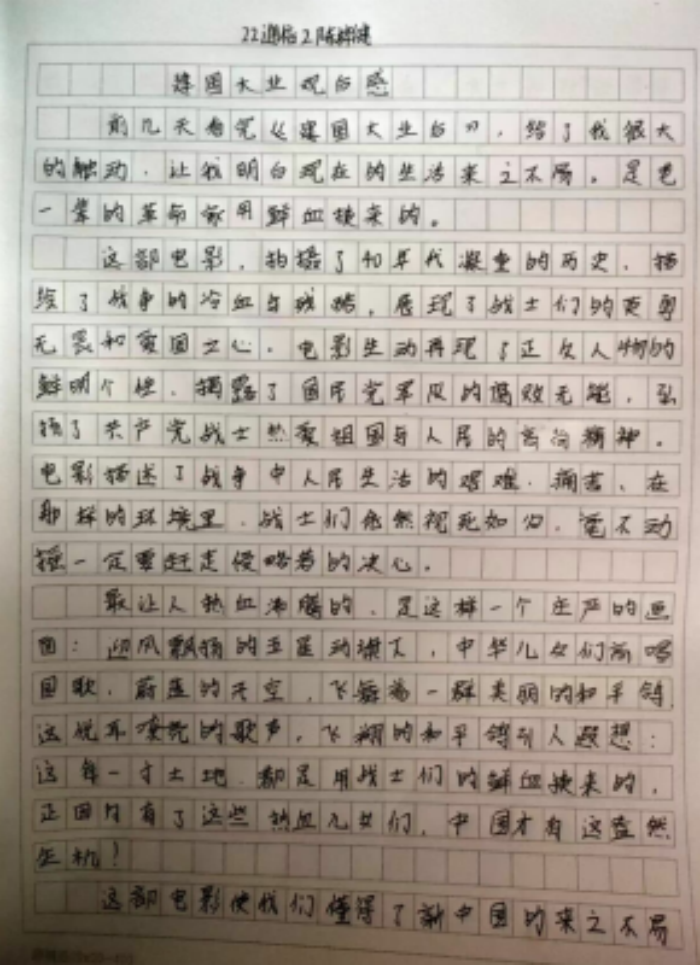 22通信2陈
建国大业观后感
前几天看完《建国大业后》,给了我很大
的触动.让我明白现在的生活来之不易,是老
一辈的革命家用鲜血换来的。
这部电影,拍摄了40年代凝重的历史.描
绘了战争的冷血与残酷,展现了战士们的英勇
无畏和爱国之心.电影生动再现了正反人物的
鲜明个性.揭露了国民党军队的腐败无能,弘
扬了共产党战士热爱祖国与人民的高尚精神。
电影描述了战争中人民生活的艰难.痛苦、在
那样的环境里.战士们依然视死如归.毫不动
摇一定要赶走侵略者的决心。
最让人热血沸腾的.是这样一个庄严的画
面:迎风飘扬的五星动旗下,中华儿女们高唱
国歌.蔚蓝的天空,飞舞着一群美丽的和平鸽.
这悦耳嘹亮的歌声,飞翔的和平鸽引人遐想:
这每一寸土地.都是用战士们的鲜血换来的,
正因为有了这些热血儿女们,中国才有这盎然
生机!
这部电影使我们懂得了新中国的来之不易